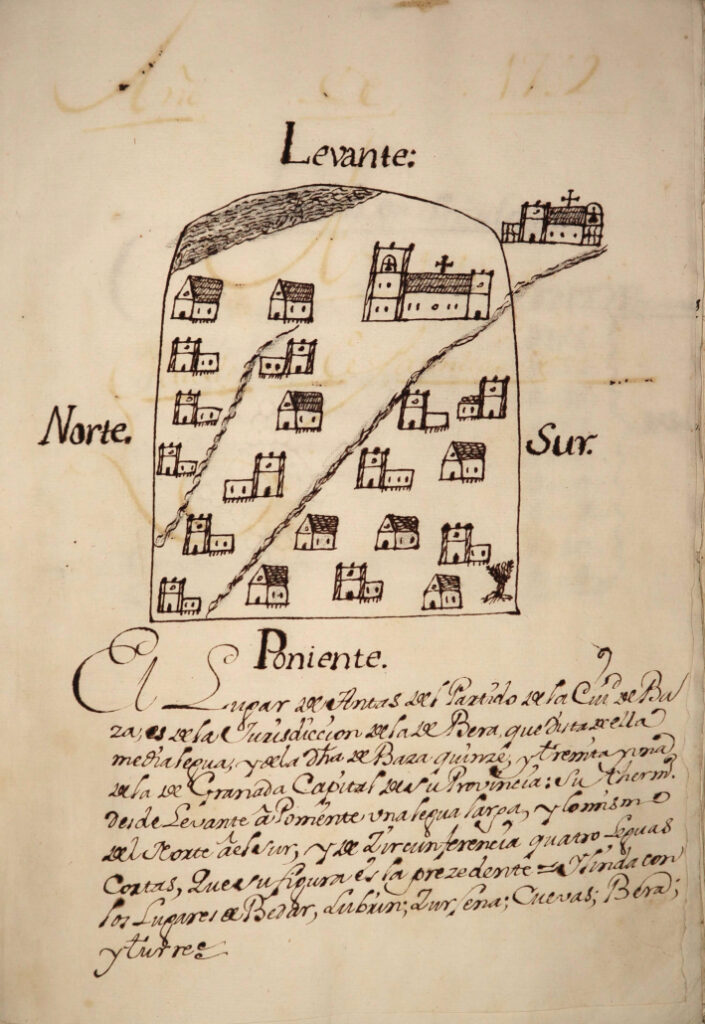 Levante:
Norte.
Sur.
Poniente.
El Lugar de Antas del Partido de la Ciud. de Ba
za, es de la Jurisdiccion de la de Bera, que dista de ella
media legua, y de la dha de Baza quinze, y treinta y una
de la de Granada Capital de su Provincia: Su therm.
desde Levante â Poniente una legua larga, y lo mismo
del Norte âel sur, y de Zircunferencia quatro leguas
Cortas, Que su figura es la prezedente = Y linda con
los Lugares de Bedar, Lubrin; Zurjena; Cuevas; Bera;
y turre =